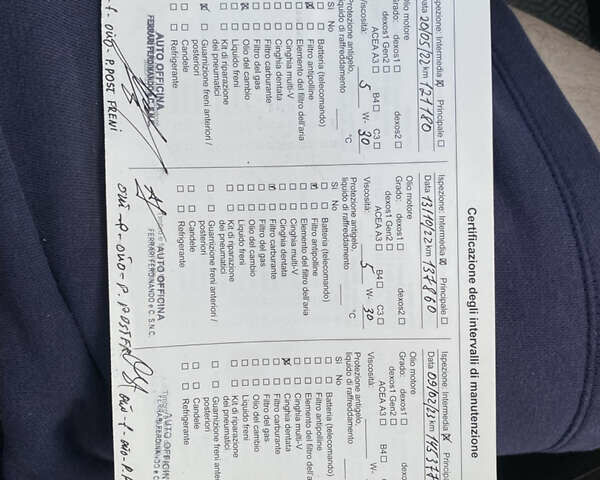 Certificazione degli intervalli di manutenzione
Ispezione: Intermedia ☒ Principale ☐
Data 20/05/22 km 121180
Olio motore
Grado: dexos1 ☐ dexos2 ☐
dexos1 Gen2 ☐
ACEA A3 ☐ B4 ☐ C3 ☐
Viscosità: 5 W- 30
Protezione antigelo,
liquido di raffreddamento °C
Sì No
☐ ☐ Batteria (telecomando)
☒ ☐ Filtro antipolline
☐ ☐ Elemento del filtro dell'aria
☐ ☐ Cinghia multi-V
☐ ☐ Cinghia dentata
☐ ☐ Filtro carburante
☐ ☐ Filtro del gas
☒ ☐ Olio del cambio
☐ ☐ Liquido freni
☐ ☐ Kit di riparazione
dei pneumatici
☒ ☐ Guarnizione freni anteriori /
posteriori
☐ ☐ Candele
☐ ☐ Refrigerante
AUTO OFFICINA
FERRARI FERNANDO e C. S.N.C.
FRENI
Ispezione: Intermedia ☒ Principale ☐
Data 13/10/22 km 137860
Olio motore
Grado: dexos1 ☐ dexos2 ☐
dexos1 Gen2 ☐
ACEA A3 ☐ B4 ☐ C3 ☐
Viscosità: 5 W- 30
Protezione antigelo,
liquido di raffreddamento °C
Sì No
☐ ☐ Batteria (telecomando)
☒ ☐ Filtro antipolline
☐ ☐ Elemento del filtro dell'aria
☐ ☐ Cinghia multi-V
☐ ☐ Cinghia dentata
☒ ☐ Filtro carburante
☐ ☐ Filtro del gas
☐ ☐ Olio del cambio
☐ ☐ Liquido freni
☐ ☐ Kit di riparazione
dei pneumatici
☐ ☐ Guarnizione freni anteriori /
posteriori
☐ ☐ Candele
☐ ☐ Refrigerante
AUTO OFFICINA
FERRARI FERNANDO e C. S.N.C.
Ispezione: Intermedia ☒ Princip
Data 09/02/23 km
Olio motore
Grado: dexos1 ☐
dexos1 Gen2 ☐
ACEA A3 ☐
Viscosità:
Protezione antigelo,
liquido di raffreddamento
Sì No
☐ ☐ Batteria (telecomando)
☐ ☐ Filtro antipolline
☐ ☐ Elemento del filtro dell'a
☐ ☐ Cinghia multi-V
☒ ☐ Cinghia dentata
☐ ☐ Filtro carburante
☐ ☐ Filtro del gas
☐ ☐ Olio del cambio
☐ ☐ Liquido freni
☐ ☐ Kit di riparazione
dei pneumatici
☐ ☐ Guarnizione freni ante
posteriori
☐ ☐ Candele
☐ ☐ Refrigerante
AUTO OFFICIN
FERRARI FERNANDO e C